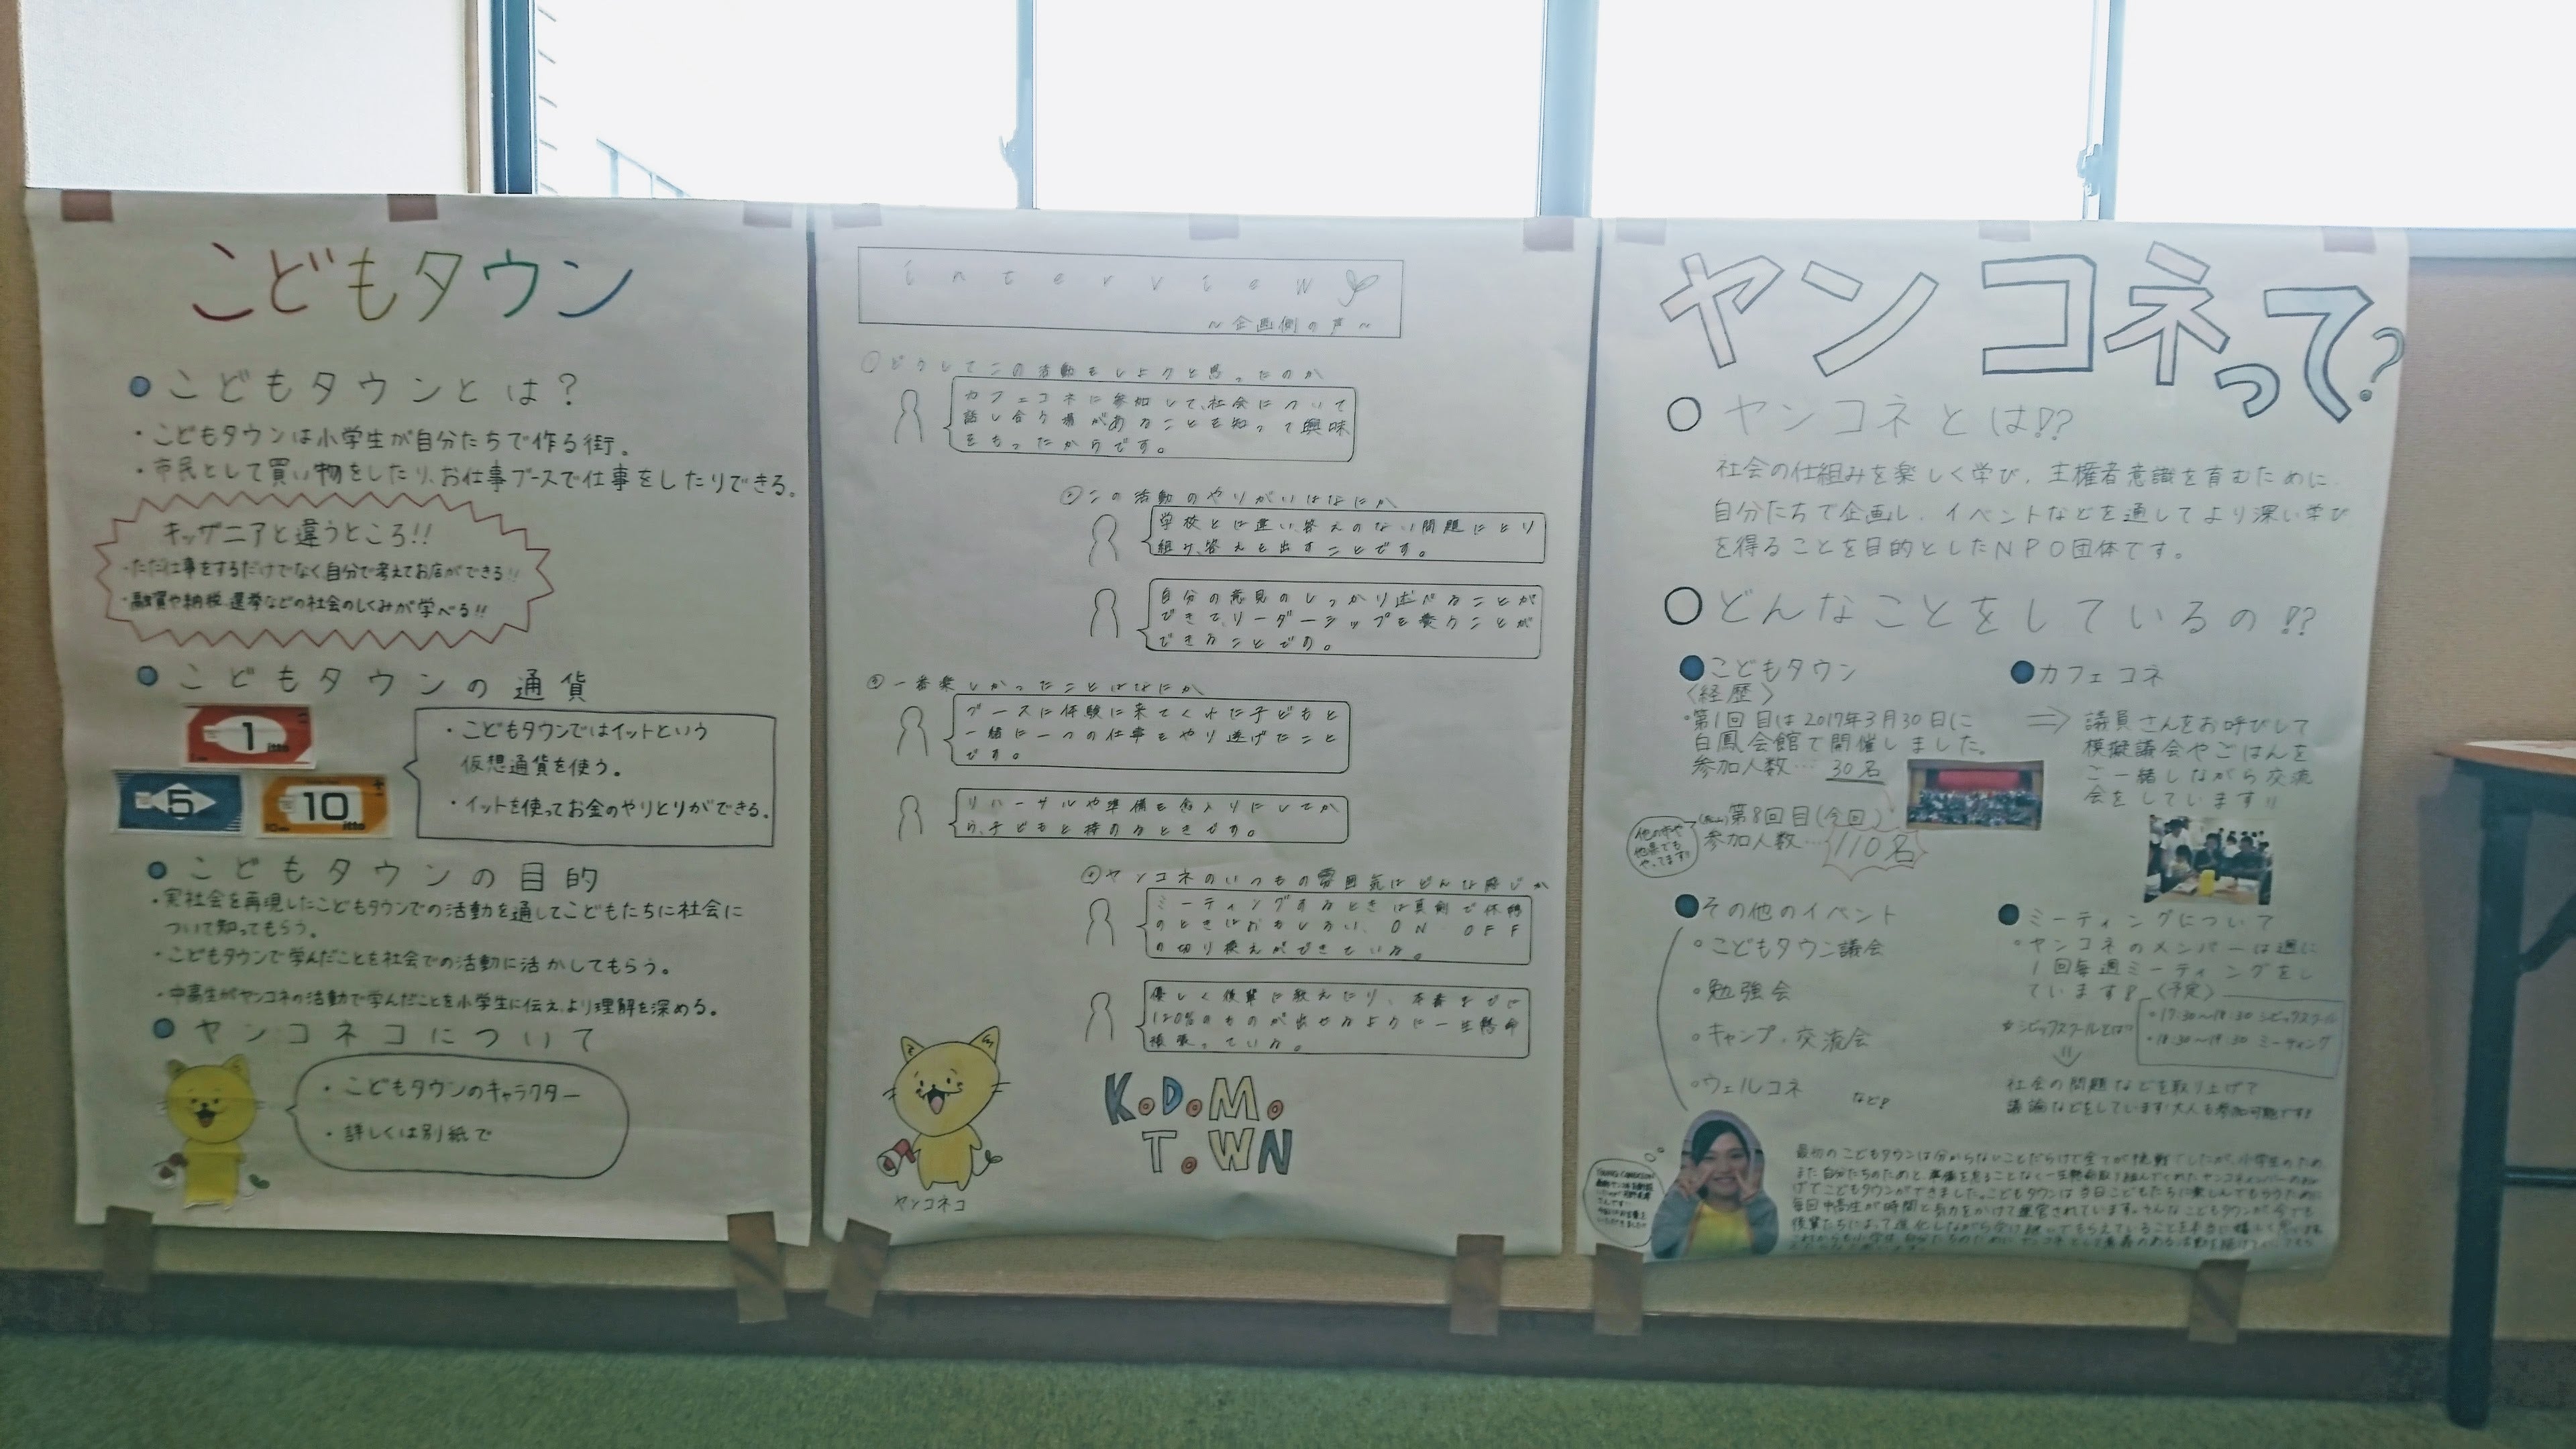 こどもタウン
こどもタウンとは?
・こどもタウンは小学生が自分たちで作る街。
・市民として買い物をしたり、お仕事ブースで仕事をしたりできる。
キッザニアと違うところ!!
・ただ仕事をするだけでなく、自分で考えてお店ができる!!
・融資や納税、選挙などの社会のしくみが学べる!!
こどもタウンの通貨
1
itto
5
10
itto
・こどもタウンではイットという
仮想通貨を使う。
・イットを使ってお金のやりとりができる。
こどもタウンの目的
・実社会を再現したこどもタウンでの活動を通してこどもたちに社会に
ついて知ってもらう。
・こどもタウンで学んだことを社会での活動に活かしてもらう。
・中高生がヤンコネの活動で学んだことを小学生に伝え、より理解を深める。
ヤンコネコについて
・こどもタウンのキャラクター
・詳しくは別紙で
interview
~企画側の声~
①どうしてこの活動をしようと思ったのか
カフェコネに参加して、社会について
話し合う場があることを知って興味
をもったからです。
②この活動のやりがいはなにか
学校とは違い、答えのない問題にとり
組み、答えを出すことです。
自分の意見のしっかり述べることが
できて、リーダーシップを養うことが
できることです。
③一番楽しかったことはなにか
ブースに体験に来てくれた子どもと
一緒に一つの仕事をやり遂げたこと
です。
リハーサルや準備を念入りにしてか
ら、子どもと接するときです。
④ヤンコネのいつもの雰囲気はどんな感じか
ミーティングするときは真剣で休憩
のときはおもしろい、ON・OFF
の切り換えができている。
優しく後輩に教えたり、本番までに
120%のものが出せるように一生懸命
頑張っている。
ヤンコネコ
K.D.M.
T.WN
ヤンコネって?
ヤンコネとは!?
社会の仕組みを楽しく学び、主権者意識を育むために、
自分たちで企画し、イベントなどを通してより深い学び
を得ることを目的としたNPO団体です。
どんなことをしているの!?
こどもタウン
〈経歴〉
・第1回目は2017年3月30日に
白鳳会館で開催しました。
参加人数… 30名
第8回目(今回)
参加人数… 110名
他の市や
他県でも
やってます!
カフェコネ
⇒ 議員さんをお呼びして
模擬議会やごはんを
ご一緒しながら交流
会をしています!!
その他のイベント
・こどもタウン議会
・勉強会
・キャンプ・交流会
・ウェルコネ
など
ミーティングについて
・ヤンコネのメンバーは週に
1回毎週ミーティングをし
ています!
〈予定〉
・17:30~18:30 シビックスクール
・18:30~19:30 ミーティング
*シビックスクールとは?
社会の問題などを取り上げて
議論などをしています!大人も参加可能です!
最初のこどもタウンは分からないことだらけで全てが挑戦でしたが、小学生のため